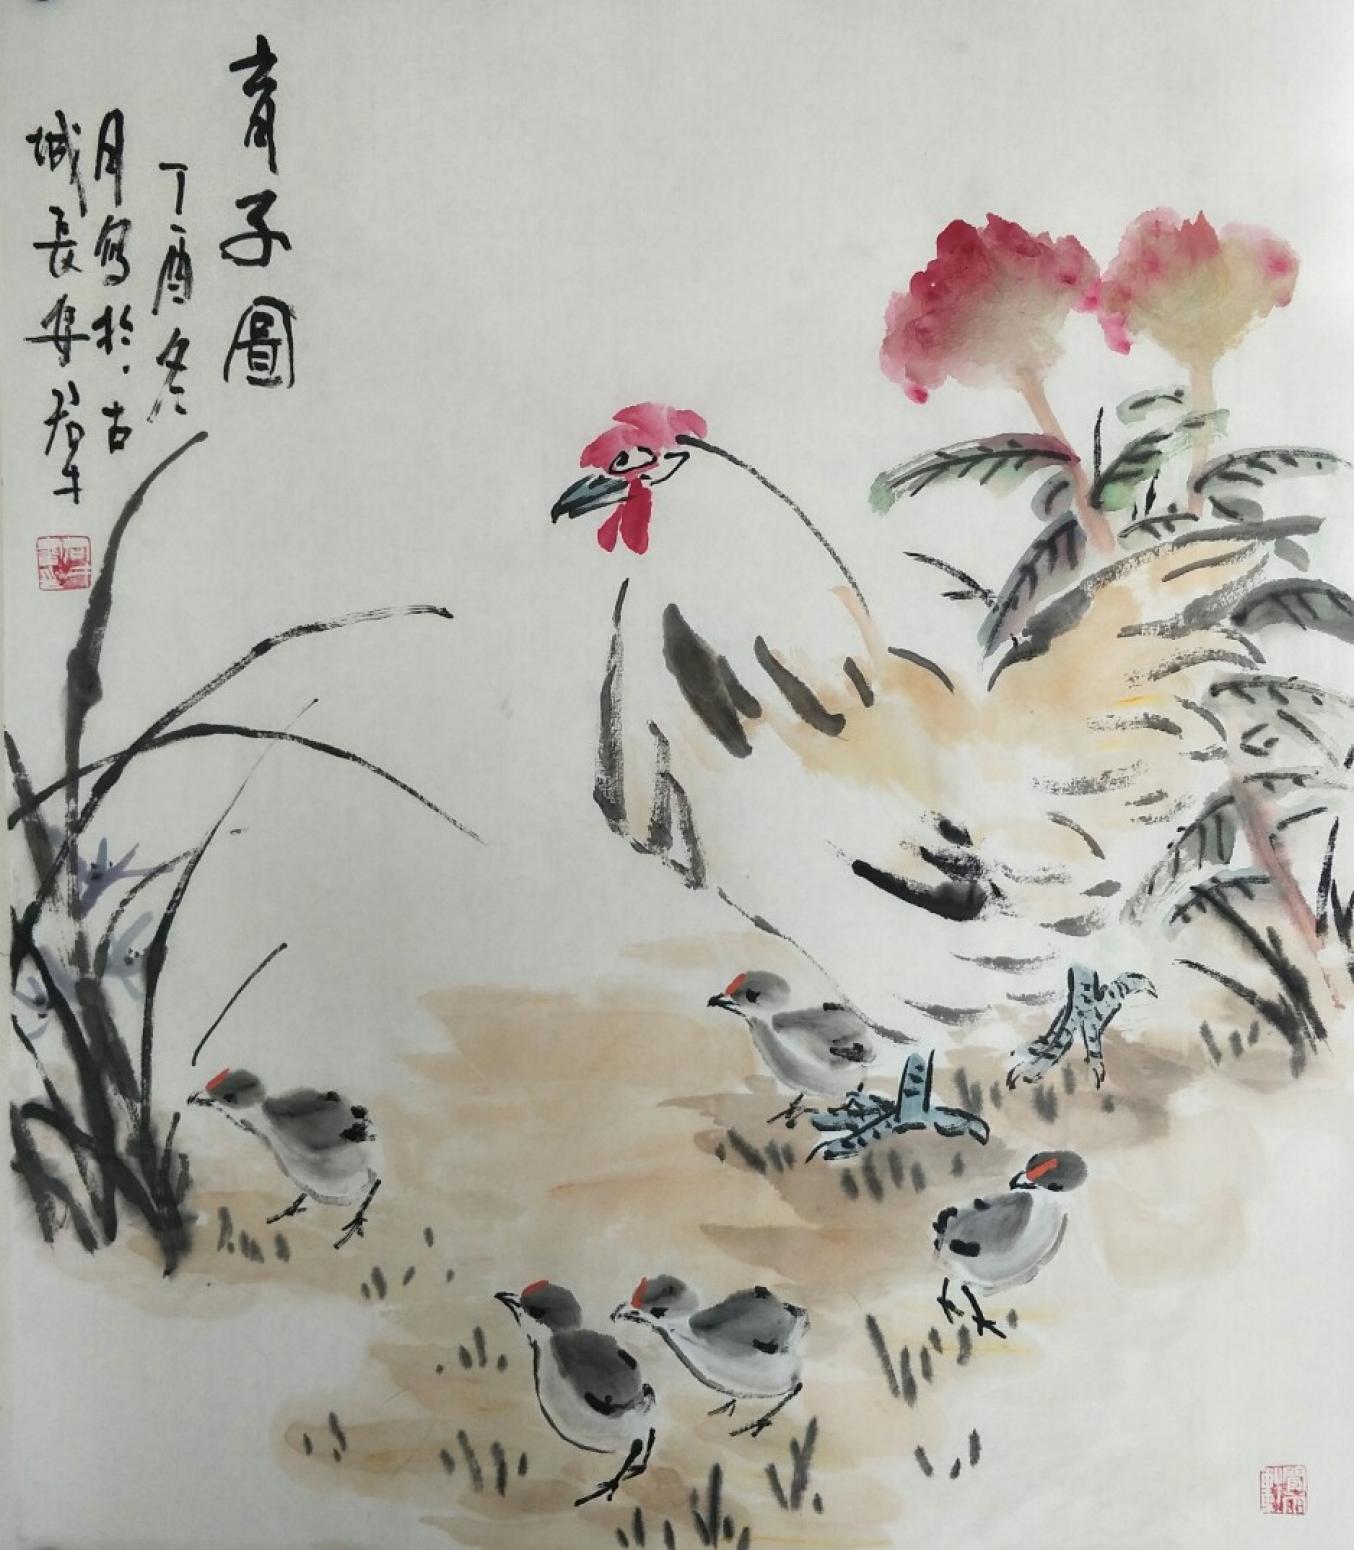 育子圖
丁酉冬
月寫於古
城長安